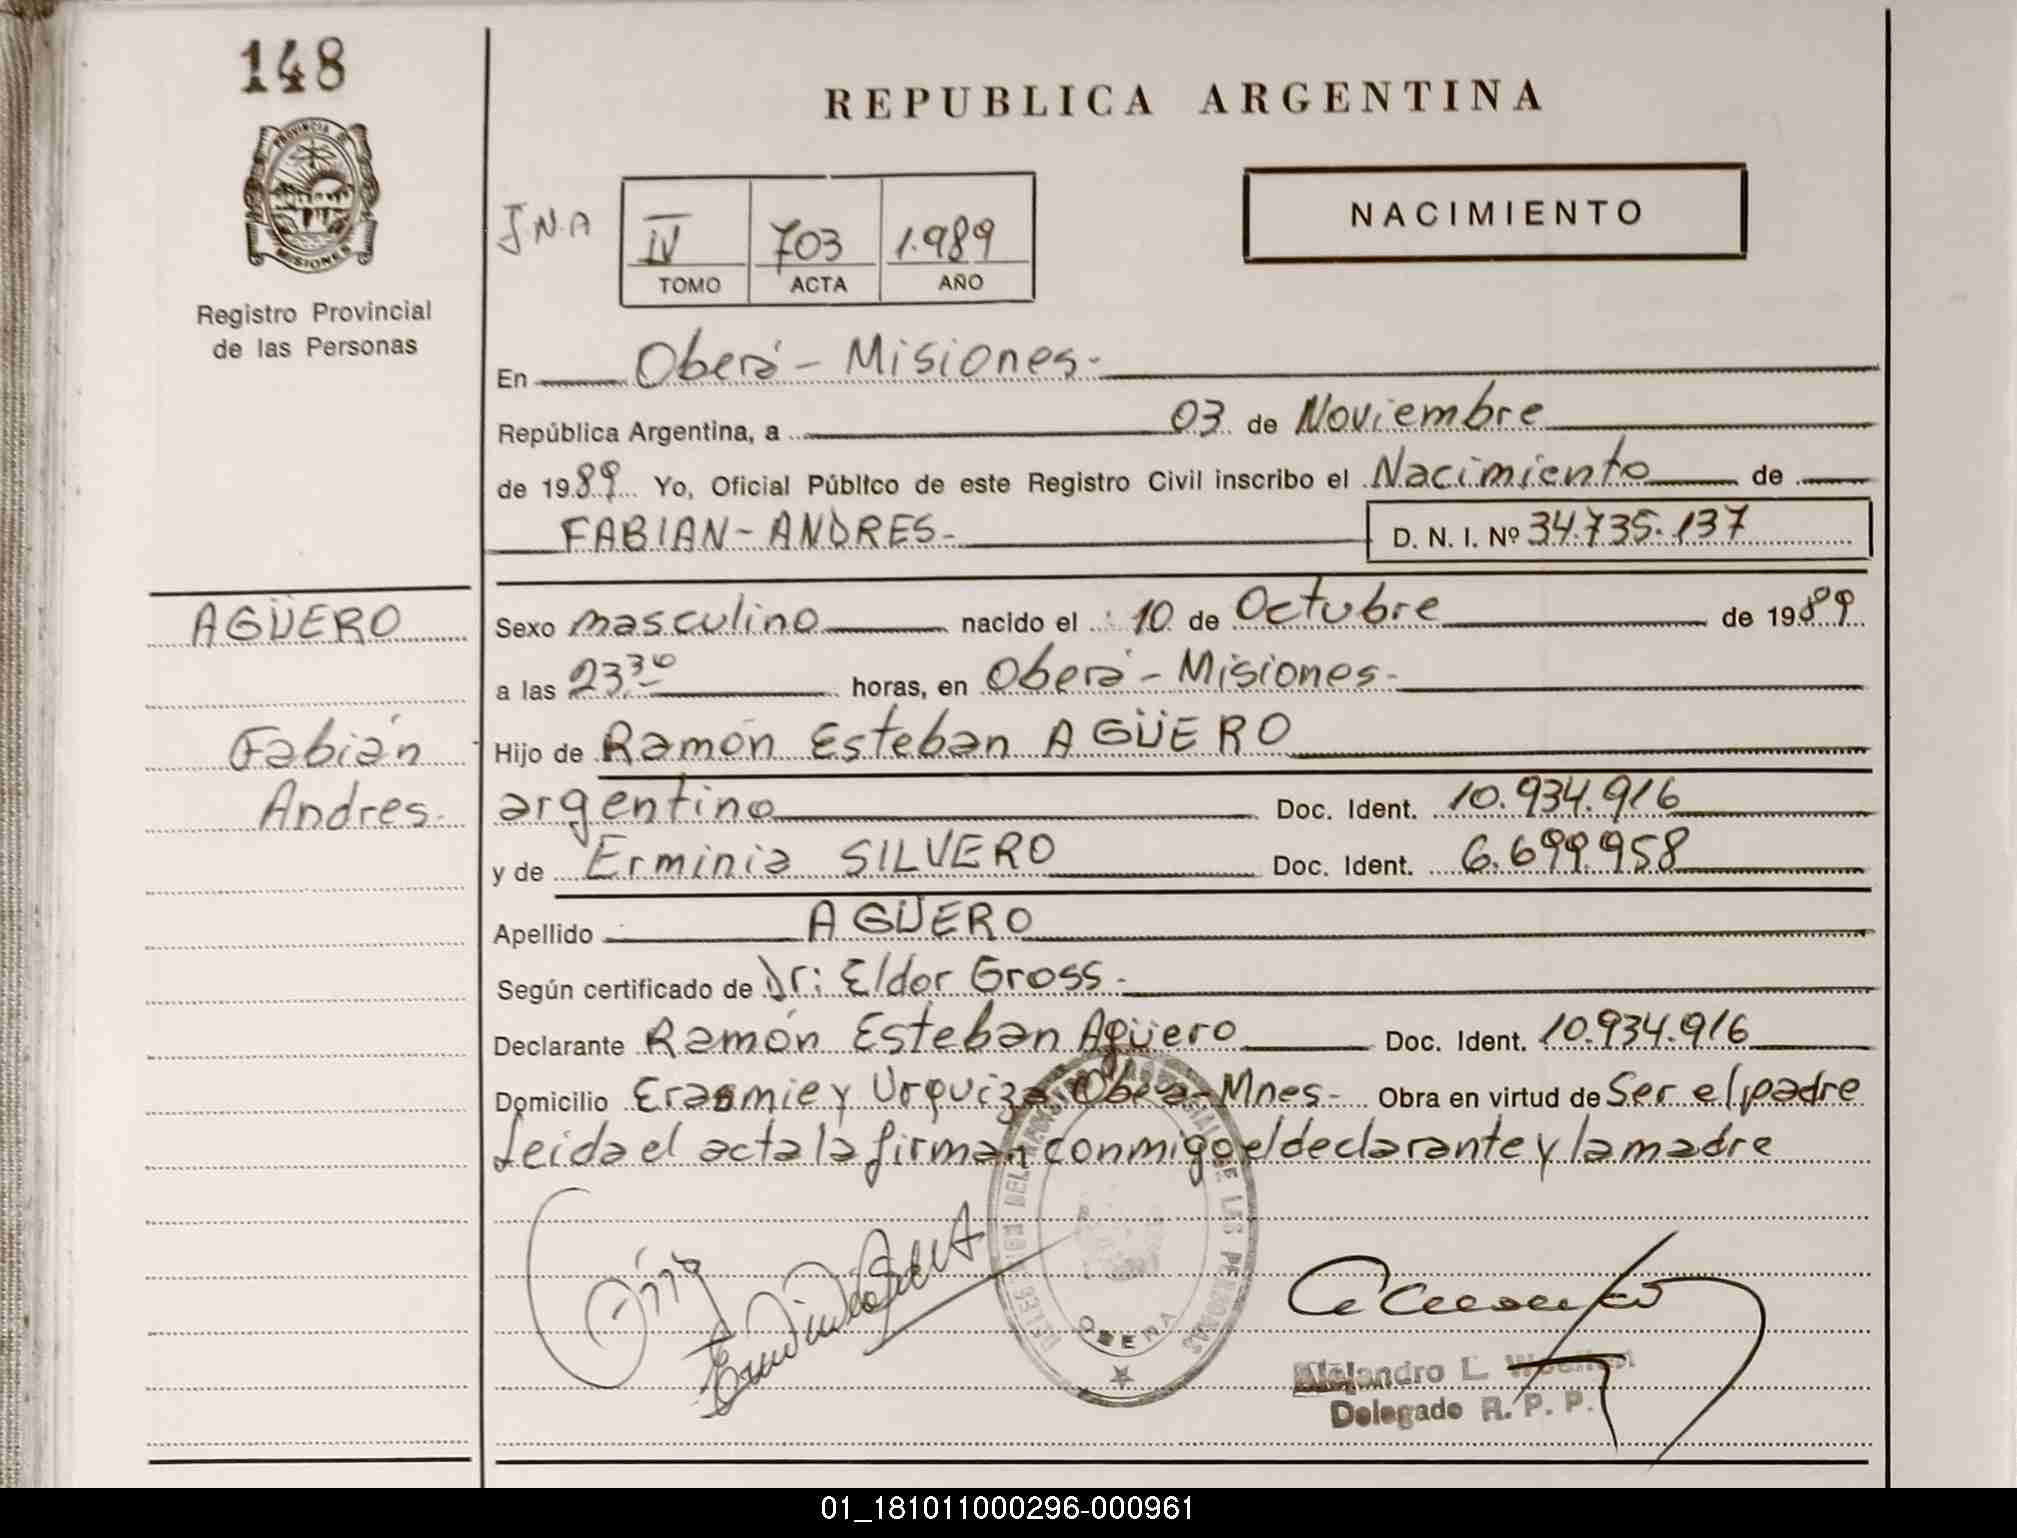 148
PROVINCIA D
MISIONES
Registro Provincial
de las Personas
AGÜERO
Fabián
Andres.
REPUBLICA ARGENTINA
J.N.A
IV 703 1.989
TOMO ACTA AÑO
NACIMIENTO
En Oberá - Misiones.
República Argentina, a 03 de Noviembre
de 1989 Yo, Oficial Público de este Registro Civil inscribo el Nacimiento de
FABIAN - ANDRES. D. N. I. Nº 34.735.137
Sexo masculino nacido el 10 de Octubre de 1989
a las 23 30 horas, en Oberá - Misiones.
Hijo de Ramón Esteban AGÜERO
argentino Doc. Ident. 10.934.916
y de Erminia SILVERO Doc. Ident. 6.699.958
Apellido AGÜERO
Según certificado de Dr: Eldor Gross.
Declarante Ramón Esteban Agüero Doc. Ident. 10.934.916
Domicilio y Urquiza Oberá - Mnes - Obra en virtud de Ser el padre
Leida el acta la firman conmigo el declarante y la madre
DE LAS PERSONAS
OBERA
Alejandro L.
Delegado R. P. P.
01_181011000296-000961